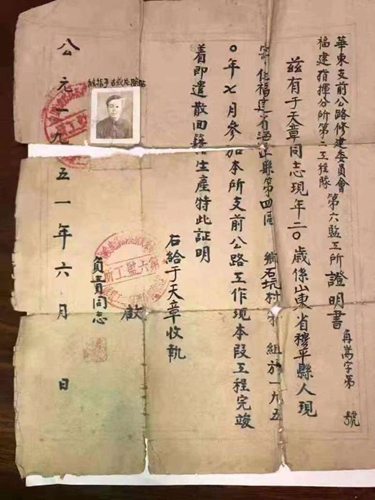 華東支前公路修建委員會
福建指揮分所第二工程隊 第六監工所證明書 再嵩字第 號
茲有于天章同志現年二0歲係山東省穆平縣人現
寄住福建省 縣第四區 鄉石坑村 組於一九五
0年七月參加本所支前公路工作現本段工程完竣
着即遣散回籍生產特此証明
右給于天章收執
負責同志 獻
公元一九五一年六月 日